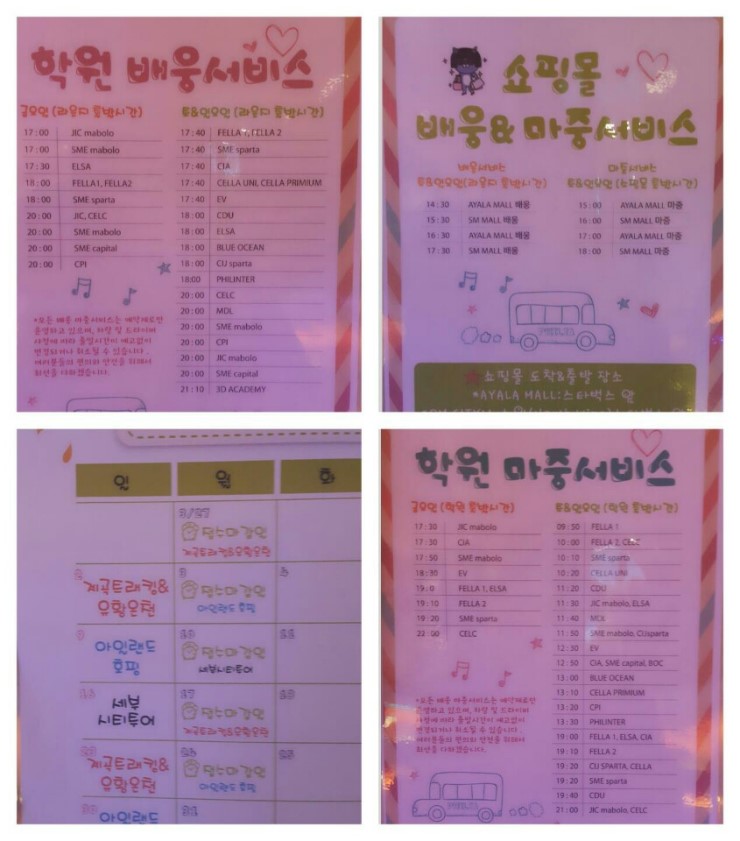 학원 배웅서비스
금요일 (라운지 출발시간)
17:00 JIC mabolo
17:00 SME mabolo
17:30 ELSA
18:00 FELLA1, FELLA2
18:00 SME sparta
20:00 JIC, CELC
20:00 SME mabolo
20:00 SME capital
20:00 CPI
*모든 배웅 마중서비스는 예약제로만
운영하고 있으며, 차량 및 드라이버
사정에 따라 출발시간이 예고없이
변경되거나 취소될 수 있습니다.
여러분들의 편의와 안전을 위해서
최선을 다하겠습니다.
토&일요일 (라운지 출발시간)
17:40 FELLA 1, FELLA 2
17:40 SME sparta
17:40 CIA
17:40 CELLA UNI, CELLA PRIMIUM
17:40 EV
18:00 CDU
18:00 ELSA
18:00 BLUE OCEAN
18:00 CU sparta
18:00 PHILINTER
20:00 CELC
20:00 MDL
20:00 SME mabolo
20:00 CPI
20:00 JIC mabolo
20:00 SME capital
21:10 3D ACADEMY
쇼핑몰
배웅&마중서비스
배웅서비스
토&일요일(라운지 출발시간)
14:30 AYALA MALL 배웅
15:30 SM MALL 배웅
16:30 AYALA MALL 배웅
17:30 SM MALL 배웅
마중서비스
토&일요일 (쇼핑몰 출발시간)
15:00 AYALA MALL 마중
16:00 SM MALL 마중
17:00 AYALA MALL 마중
18:00 SM MALL 마중
쇼핑몰 도착&출발 장소
*AYALA MALL:스타벅스 앞
일 월 화
3/27
계곡트래킹&유황온천
2 3 4
계곡트래킹&
유황온천
아일랜드 호핑
9
아일랜드
호핑
세부시티투어
세부
시티투어
17
계곡트래킹&유황온천
계곡트래킹&
유황온천
아일랜드 호핑
아일랜드
31
학원 마중서비스
금요일 (학원 출발시간)
17:30 JIC mabolo
17:30 CIA
17:50 SME mabolo
18:30 EV
19:0 FELLA 1, ELSA
19:10 FELLA 2
19:20 SME sparta
22:00 CELC
*모든 배웅 마중서비스는 예약제로만
운영하고 있으며, 차량 및 드라이버
사정에 따라 출발시간이 예고없이
변경되거나 취소될 수 있습니다.
여러분들의 편의와 안전을 위해서
최선을 다하겠습니다.
토&일요일 (학원 출발시간)
09:50 FELLA 1
10:00 FELLA 2, CELC
10:10 SME sparta
10:20 CELLA UNI
11:20 CDU
11:30 JIC mabolo, ELSA
11:40 MDL
11:50 SME mabolo, CUsparta
12:30 EV
12:50 CIA, SME capital, BOC
13:00 BLUE OCEAN
13:10 CELLA PRIMIUM
13:20 CPI
13:30 PHILINTER
19:00 FELLA 1, ELSA, CIA
19:10 FELLA 2
19:20 CU SPARTA, CELLA
19:20 SME sparta
19:40 CDU
21:00 JIC mabolo, CELC